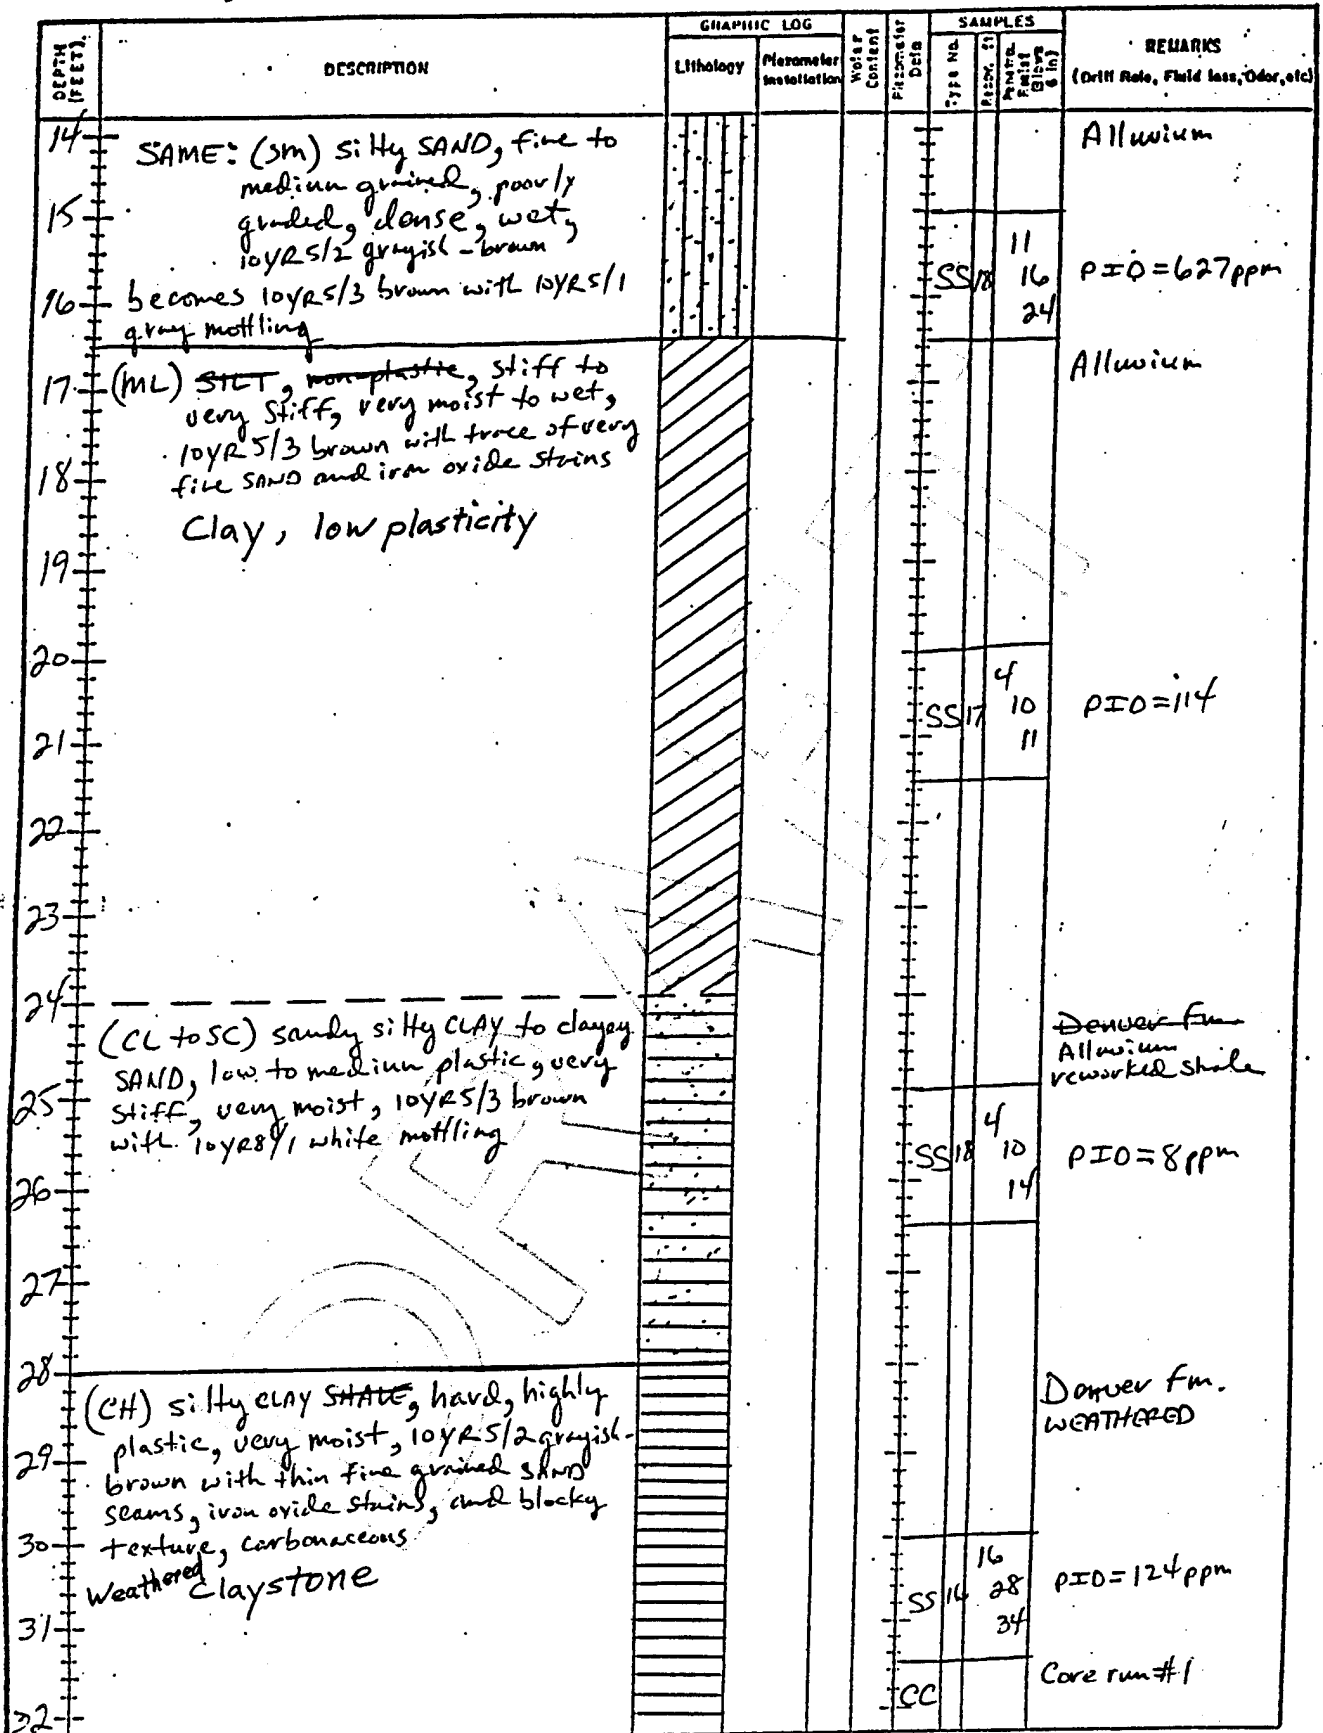 GRAPHIC LOG
SAMPLES
DEPTH (FEET).
DESCRIPTION
Lithology
Piezometer Installation
Water Content
Piezometer Data
Type No.
REMARKS
(Drill Rate, Fluid loss, Odor, etc)
14
SAME: (SM) silty SAND, fine to
medium grained, poorly
graded, dense, wet,
10YR5/2 grayish-brown
Alluvium
15
11
SS 18 16
24
PID=627ppm
16
becomes 10YR5/3 brown with 10YR5/1
gray mottling
17
(ML) SILT, non-plastic, stiff to
very stiff, very moist to wet,
10YR 5/3 brown with trace of very
fine SAND and iron oxide stains
Alluvium
18
Clay, low plasticity
19
20
4
SS 17 10
11
PID=114
21
22
23
24
(CL to SC) sandy silty CLAY to clayey
SAND, low to medium plastic, very
stiff, very moist, 10YR5/3 brown
with 10YR8/1 white mottling
Denver Fm
Alluvium
reworked shale
25
4
SS 18 10
14
PID=8ppm
26
27
28
(CH) silty CLAY SHALE, hard, highly
plastic, very moist, 10YR5/2 grayish-
brown with thin fine grained SAND
seams, iron oxide stains, and blocky
texture, carbonaceous
Weathered Claystone
Denver Fm.
WEATHERED
29
30
16
SS 16 28
34
PID=124ppm
31
CC
Core run #1
32
DRAFT